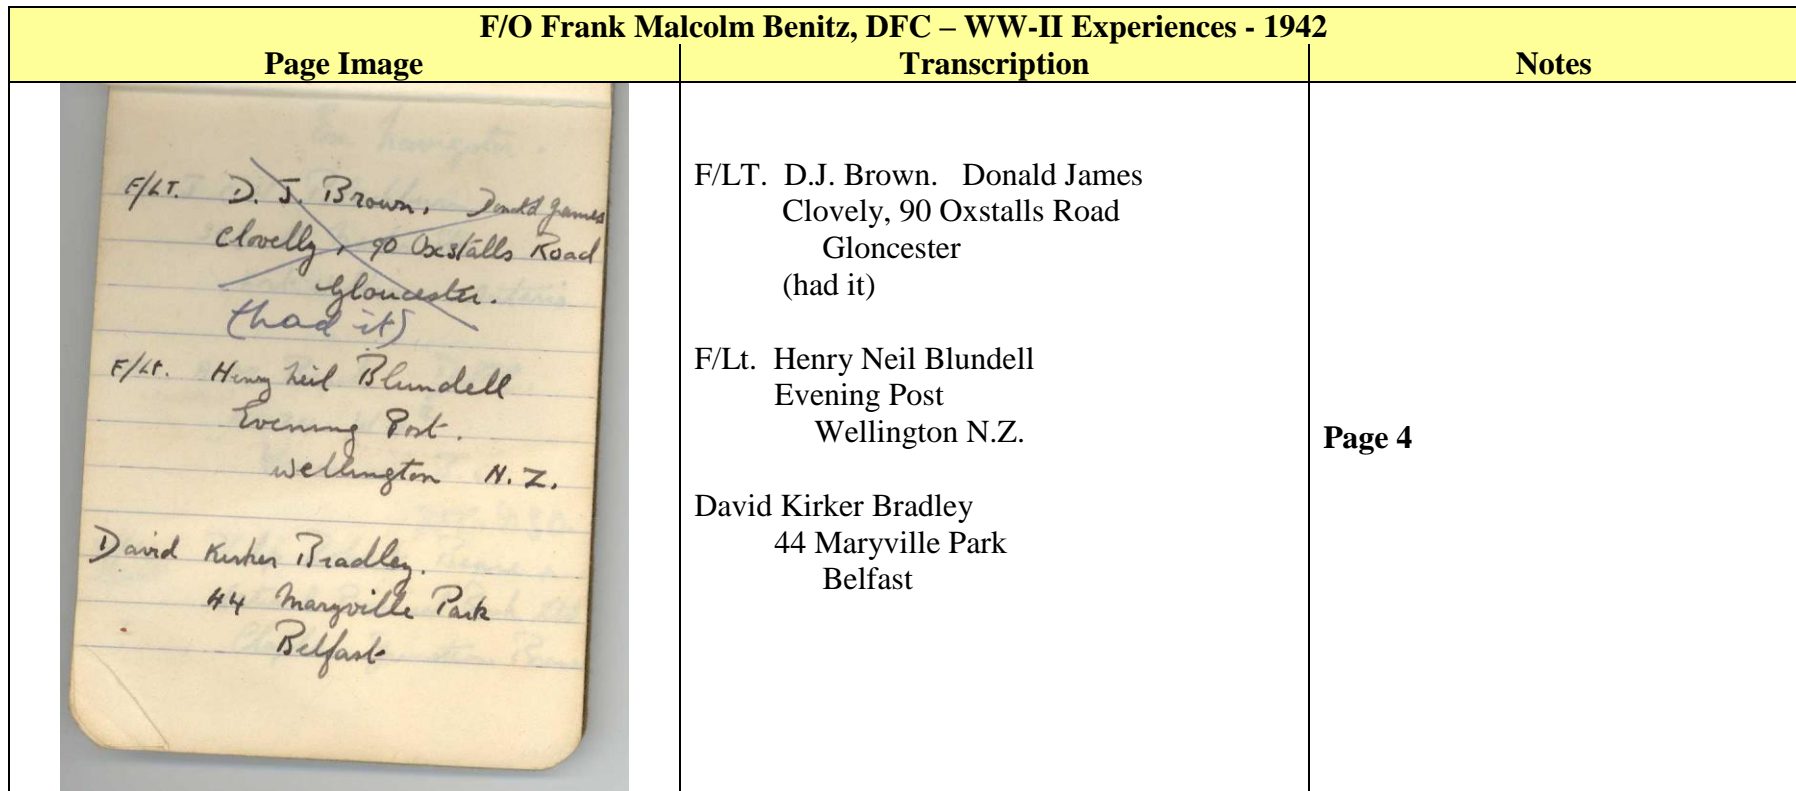 F/O Frank Malcolm Benitz, DFC – WW-II Experiences - 1942
Page Image
Transcription
Notes
F/LT. D. J. Brown, Donald James
Clovelly, 90 Oxstalls Road
Gloucester.
(had it)
F/Lt. Henry Neil Blundell
Evening Post.
Wellington N.Z.
David Kirker Bradley.
44 Maryville Park
Belfast
F/LT. D.J. Brown. Donald James
Clovely, 90 Oxstalls Road
Gloncester
(had it)
F/Lt. Henry Neil Blundell
Evening Post
Wellington N.Z.
David Kirker Bradley
44 Maryville Park
Belfast
Page 4